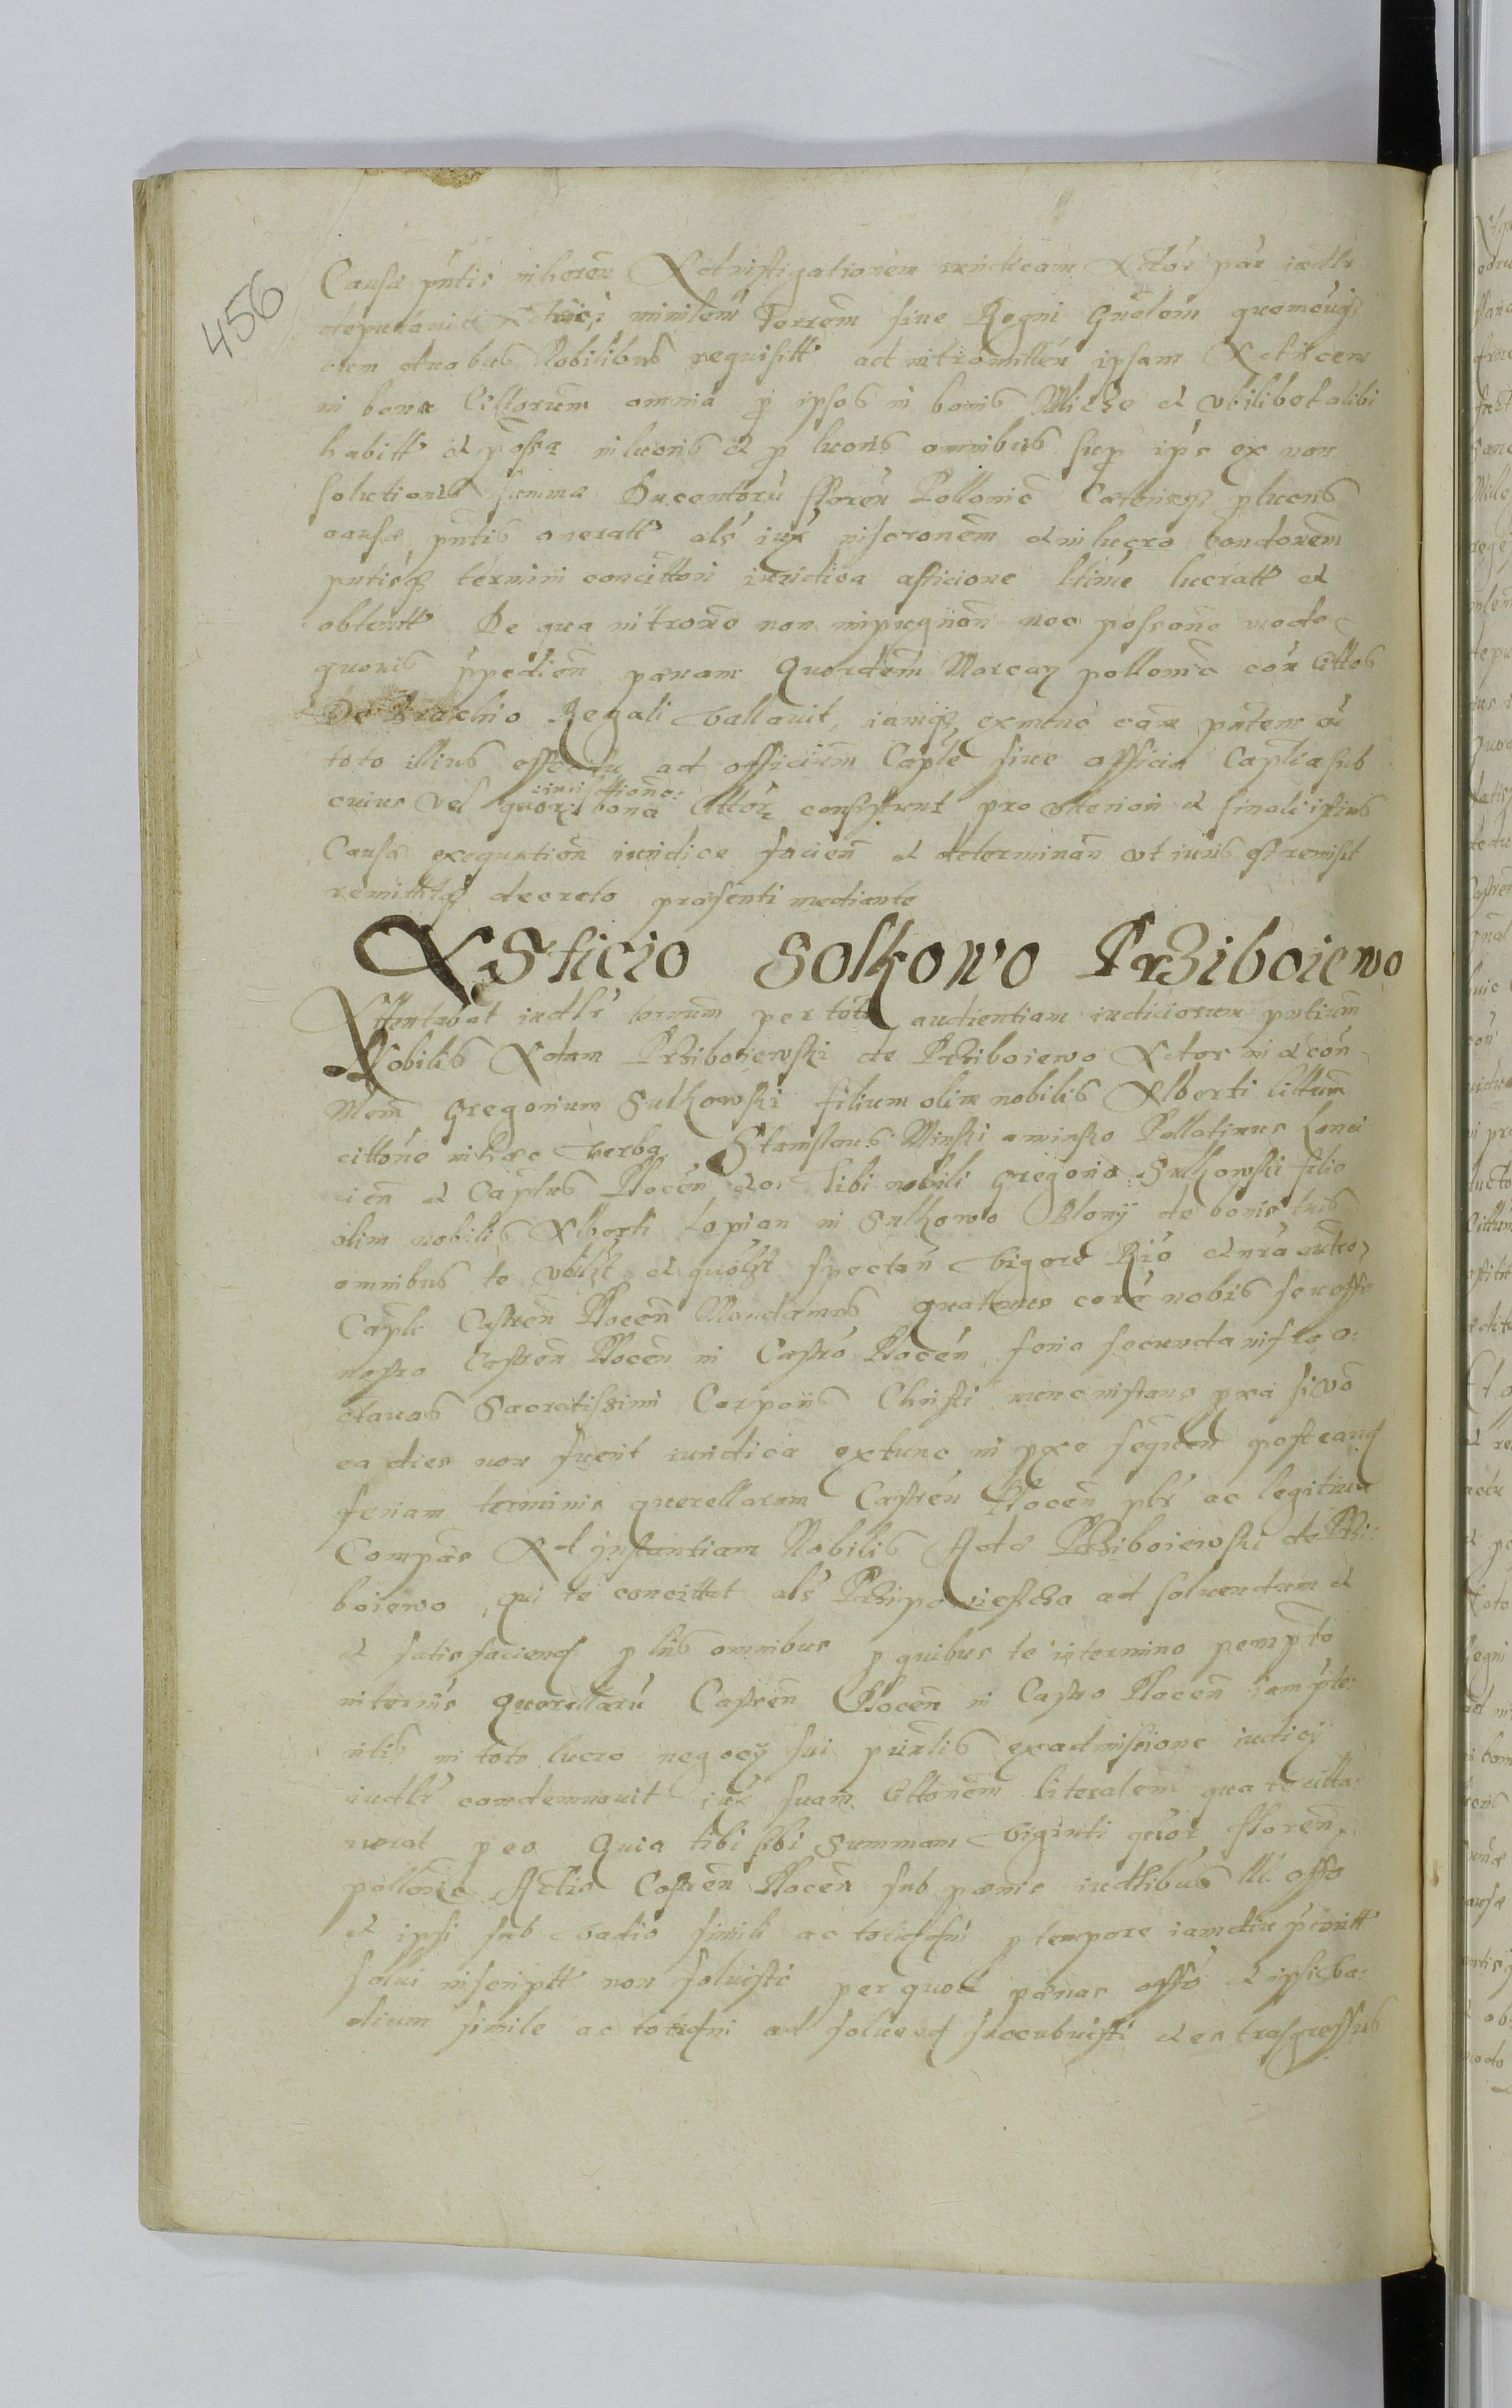 456
Causæ pntis inhæren Ad instigationem iuridicam Actor par iudlr
deputavit ministm Terrem sive Regni Gnalem quemcunq
cum duabus Nobilibus requisitt ad intromitten ipsam Actricem
in bona Cittorum omnia p ipsos in bonis Milze et ubilibet alibi
habitt et possa in lucris et p lucris omnibus sup ips ex non
solutione summa Ducentoru floren Pollonic Cæterisq p lucris
causæ pntis oneratt als iux inscronem et in lucro condonem
pntisq termini concitton iuridica afficione ltime lucratt et
obtentt De qua introne non impugnan nec possone modo
quovis impedien pænam Quordem Marcar pollonic con Cittos
De Brachio Regali vallavit, iamq exnunc cam pntem cu
toto illius effectu ad officium Caple sive officia Caplia sub
cuius vel quor iurisdictione: bona Cittor consistunt pro ulteriori et finali istius
Causæ exequution iuridice facien et determinan ut iuris est remisit
remittitq decreto præsenti mediante
Adficio Solkowo Prziboiewo
Attentabat iudlr termum per tota audientiam iudiciorum pntium
Nobilis Adam Prziboiewski de Prziboiewo Actor in et con
Nlem Gregorium Sulkowski filium olim nobilis Alberti Cittum
cittone in hæc verba Stanislaus Minski a minsko Pallatinus Lenci
cien et Captus Plocen etc Tibi nobili Gregorio Sulkowski filio
olim nobilis Alberti Lopian in Sulkowo Blonÿ de bonis tuis
omnibus te ubilzt et quolzt spectan vigore Rio et nra auto
Capli Castren Plocen Mandamus quatenus cora nobis seu offo
nostro Castren Plocen in Castro Plocen feria secunda infra o
ctavas Sacratissimi Corporis Christi nunc instans pxa si vo
ea dies non fuerit iuridica extunc in pxe sequen post eand
feriam terminis querellarum Castren Plocen plr ac legitime
Compas Ad instantiam Nobilis Adæ Prziboiewski de Przi
boiewo, qui te concittat als Przipowiescza ad solvendum et
et satisfaciend p his omnibus p quibus te in termino pempto
in termis querellaru Castren Plocen in Castro Plocen iam pte
ritis in toto lucro negocÿ sui prilis ex admissione iudicÿ
iudlr condemnavit iux suam Cittonem literalem qua te citta
verat p eo Quia tibi sibi Summam viginti quor floren
pollonic Actis Castren Plocen sub pænis iudlibus lli offo
et ipsi sub vadio simili ac totiddni p tempore iamdiu pteritt
solvi inscriptt non solvisti per quod pænas offo et ipsi va
dium simile ac totidni ad solvend succubuisti et ea trasgressus